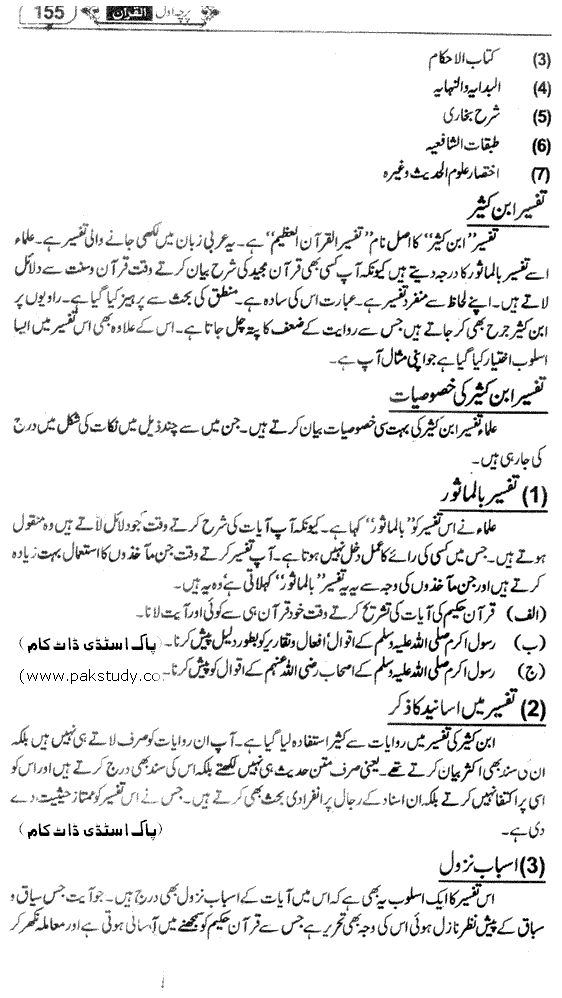 پرچہ اول القرآن 155
(3) کتاب الاحکام
(4) البدایہ والنہایہ
(5) شرح بخاری
(6) طبقات الشافعیہ
(7) اختصار علوم الحدیث وغیرہ
تفسیر ابن کثیر
تفسیر ”ابن کثیر“ کا اصل نام ”تفسیر القرآن العظیم“ ہے۔ یہ عربی زبان میں لکھی جانے والی تفسیر ہے۔ علماء
اسے تفسیر بالماثور کا درجہ دیتے ہیں کیونکہ آپ کسی بھی قرآن مجید کی شرح بیان کرتے وقت قرآن و سنت سے دلائل
لاتے ہیں۔ اپنے لحاظ سے منفرد تفسیر ہے۔ عبارت اس کی سادہ ہے۔ منطق کی بحث سے پرہیز کیا گیا ہے۔ راویوں پر
ابن کثیر جرح بھی کر جاتے ہیں جس سے روایت کے ضعف کا پتہ چل جاتا ہے۔ اس کے علاوہ بھی اس تفسیر میں ایسا
اسلوب اختیار کیا گیا ہے جو اپنی مثال آپ ہے۔
تفسیر ابن کثیر کی خصوصیات
علماء تفسیر ابن کثیر کی بہت سی خصوصیات بیان کرتے ہیں۔ جن میں سے چند ذیل میں نکات کی شکل میں درج
کی جا رہی ہیں۔
(1) تفسیر بالماثور
علماء نے اس تفسیر کو ”بالماثور“ کہا ہے۔ کیونکہ آپ آیات کی شرح کرتے وقت جو دلائل لاتے ہیں وہ منقول
ہوتے ہیں۔ جس میں کسی کی رائے کا عمل دخل نہیں ہوتا ہے۔ آپ تفسیر کرتے وقت جن مآخذوں کا استعمال بہت زیادہ
کرتے ہیں اور جن مآخذوں کی وجہ سے یہ یہ تفسیر ”بالماثور“ کہلاتی ہے وہ یہ ہیں۔
(الف) قرآن حکیم کی آیات کی تشریح کرتے وقت خود قرآن ہی سے کوئی اور آیت لانا۔
(ب) رسول اکرم صلی اللہ علیہ وسلم کے اقوال افعال و تقاریر کو بطور دلیل پیش کرنا۔ (پاک اسٹڈی ڈاٹ کام)
(ج) رسول اکرم صلی اللہ علیہ وسلم کے اصحاب رضی اللہ عنہم کے اقوال کو پیش کرنا۔ (www.pakstudy.co
(2) تفسیر میں اسانید کا ذکر
ابن کثیر کی تفسیر میں روایات سے کثیر استفادہ لیا گیا ہے۔ آپ ان روایات کو صرف لاتے ہی نہیں ہیں بلکہ
ان کی سند بھی اکثر بیان کرتے تھے۔ یعنی صرف متن حدیث ہی نہیں لکھتے بلکہ اس کی سند بھی درج کرتے ہیں اور اس کو
اسی پر اکتفا نہیں کرتے بلکہ ان اسناد کے رجال پر انفرادی بحث بھی کرتے ہیں۔ جس نے اس تفسیر کو ممتاز حیثیت دے
دی ہے۔ (پاک اسٹڈی ڈاٹ کام)
(3) اسباب نزول
اس تفسیر کا ایک اسلوب یہ بھی ہے کہ اس میں آیات کے اسباب نزول بھی درج ہیں۔ جو آیت جس سیاق و
سباق کے پیش نظر نازل ہوئی اس کی وجہ بھی تحریر ہے جس سے قرآن حکیم کو سمجھنے میں آسانی ہوتی ہے اور معاملہ نکھر کر